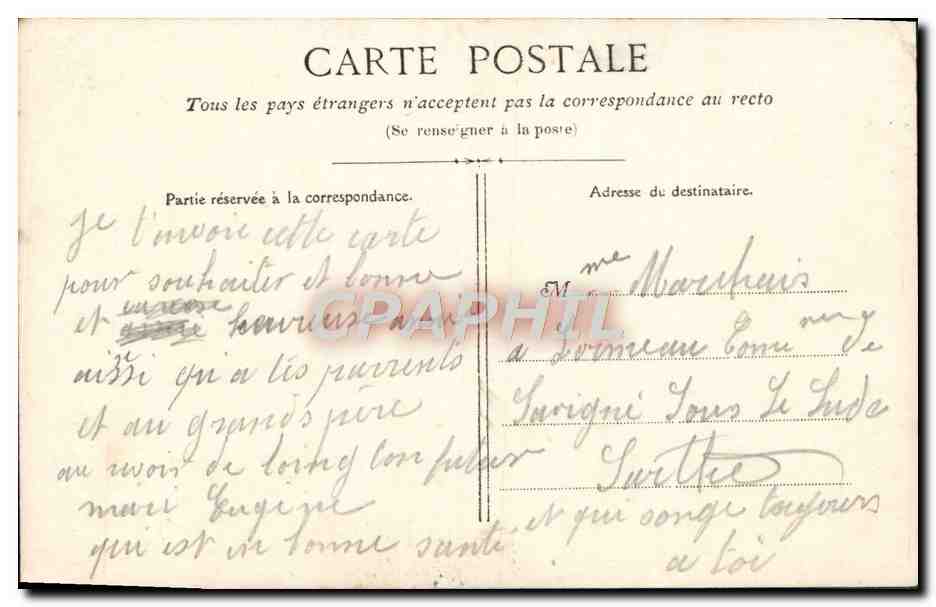 CARTE POSTALE
Tous les pays étrangers n'acceptent pas la correspondance au recto
(Se renseigner à la poste)
Partie réservée à la correspondance.
je t'envoie cette carte
pour souhaiter et bonne
et heureuse anné
aissi qu a tés parrents
et au grands père
au de loing ton futur
mari Eugène
qui est en bonne santé
et qui songe toujours
a toi
Adresse du destinataire.
Mme Marchais
a Lormeau Comune de
Savigné Sous Le Lude
Sarthe
CPAPHIL